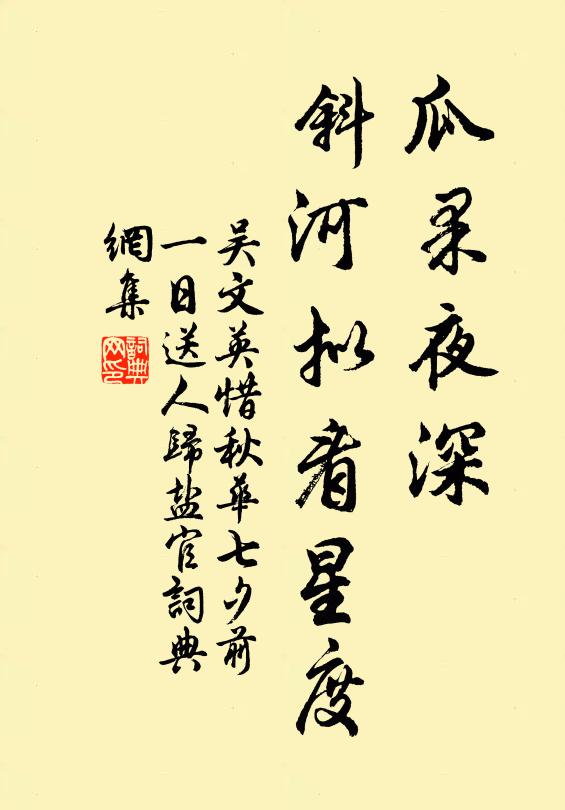 瓜果夜深
斜河拟看星度
吴文英惜秋華七夕前
一日送人歸盐官詞典
網集
詞典
网印